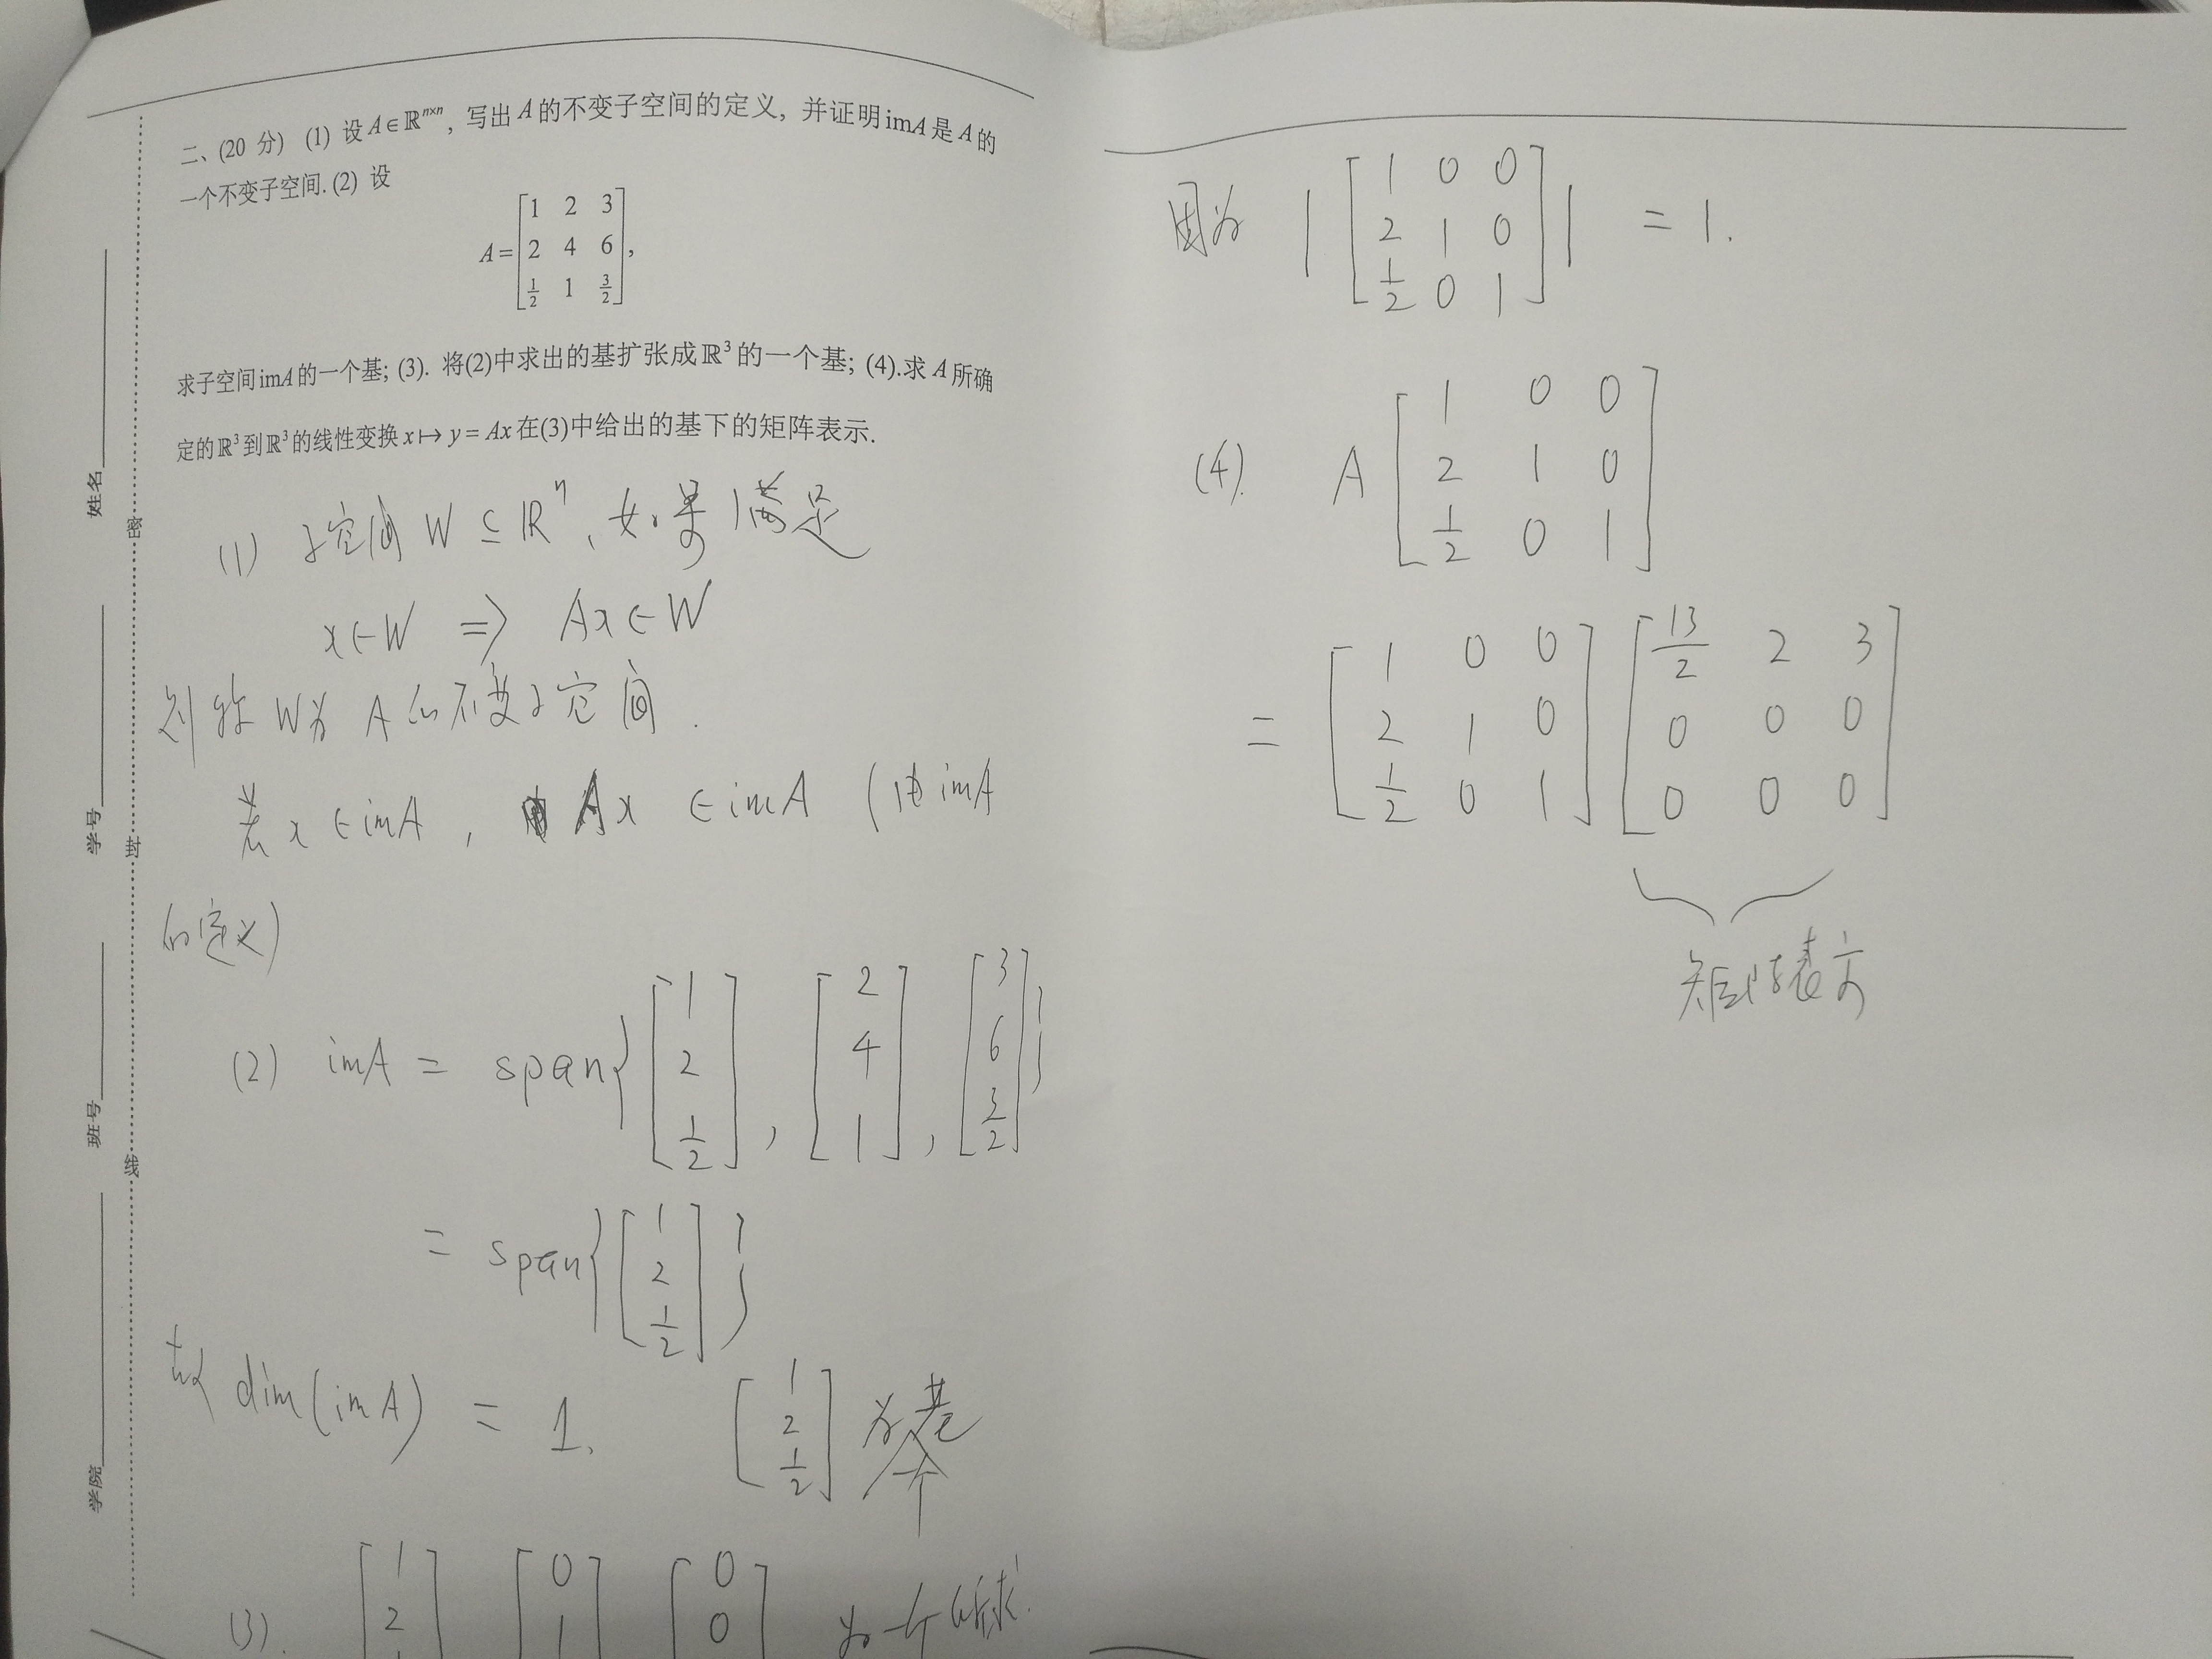 二、(20 分) (1) 设 A∈ℝⁿˣⁿ, 写出 A 的不变子空间的定义, 并证明 imA 是 A 的
一个不变子空间. (2) 设
A = [1 2 3; 2 4 6; 1/2 1 3/2],
求子空间 imA 的一个基; (3). 将(2)中求出的基扩张成 ℝ³ 的一个基; (4).求 A 所确
定的 ℝ³ 到 ℝ³ 的线性变换 x ↦ y = Ax 在(3)中给出的基下的矩阵表示.
(1) 子空间 W ⊆ ℝⁿ, 如果满足
x∈W ⇒ Ax∈W
则称 W为 A 的不变子空间.
若 x∈imA, Ax ∈imA (由 imA
的定义)
(2) imA = span{[1; 2; 1/2], [2; 4; 1], [3; 6; 3/2]}
= span{[1; 2; 1/2]}
故 dim(imA) = 1. [1; 2; 1/2] 为一个基
(3). [1; 2 [0; 1 [0; 0 为一个所求.
姓名
学号
班号
学院
密
封
线
因为 |[1 0 0; 2 1 0; 1/2 0 1]| = 1.
(4). A [1 0 0; 2 1 0; 1/2 0 1]
= [1 0 0; 2 1 0; 1/2 0 1] [13/2 2 3; 0 0 0; 0 0 0]
矩阵表示